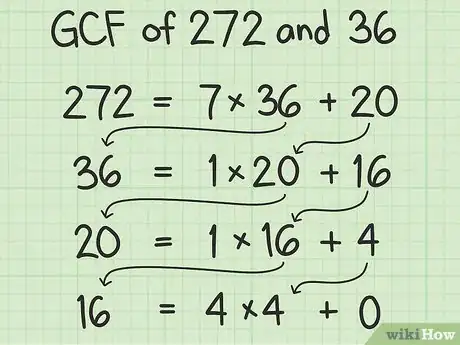 GCF of 272 and 36
272 = 7 × 36 + 20
36 = 1 × 20 + 16
20 = 1 × 16 + 4
16 = 4 × 4 + 0
wikiHow